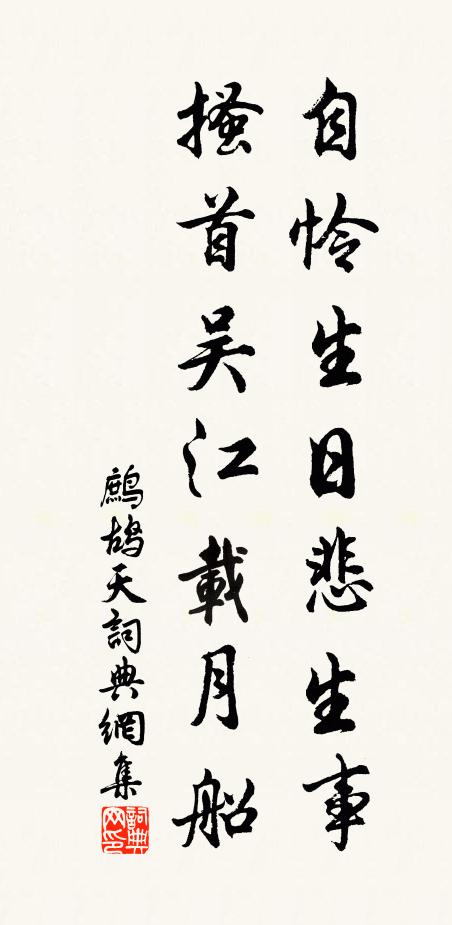 自怜生日悲生事
搔首吴江載月船
鷓鴣天詞典網集
詞典网印